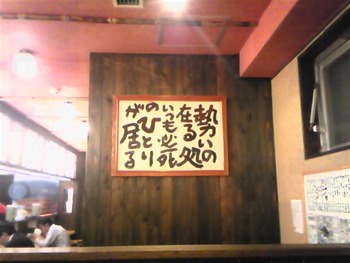 勢いの
在る処
いつも必死
のひとり
が居る